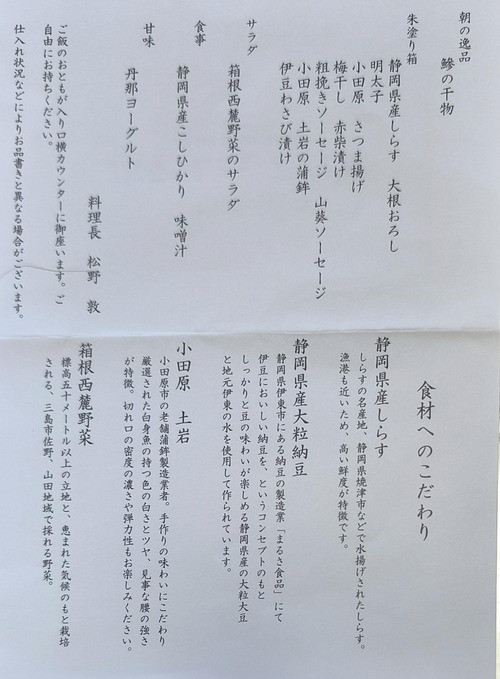 朝の逸品
鰺の干物
朱塗り箱
静岡県産しらす 大根おろし
明太子
小田原 さつま揚げ
梅干し 赤柴漬け
粗挽きソーセージ 山葵ソーセージ
小田原 土岩の蒲鉾
伊豆わさび漬け
サラダ
箱根西麓野菜のサラダ
食事
静岡県産こしひかり 味噌汁
甘味
丹那ヨーグルト
料理長 松野 敦
ご飯のおともが入り口横カウンターに御座います。ご
自由にお持ちください。
仕入れ状況などによりお品書きと異なる場合がございます。
食材へのこだわり
静岡県産しらす
しらすの名産地、静岡県焼津市などで水揚げされたしらす。
漁港も近いため、高い鮮度が特徴です。
静岡県産大粒納豆
静岡県伊東市にある納豆の製造業「まるさ食品」にて
伊豆においしい納豆を、というコンセプトのもと
しっかりと豆の味わいが楽しめる静岡県産の大粒大豆
と地元伊東の水を使用して作られています。
小田原 土岩
小田原市の老舗蒲鉾製造業者。手作りの味わいにこだわり
厳選された白身魚の持つ色の白さとツヤ、見事な腰の強さ
が特徴。切れ口の密度の濃さや弾力性もお楽しみください。
箱根西麓野菜
標高五十メートル以上の立地と、恵まれた気候のもと栽培
される、三島市佐野、山田地域で採れる野菜。